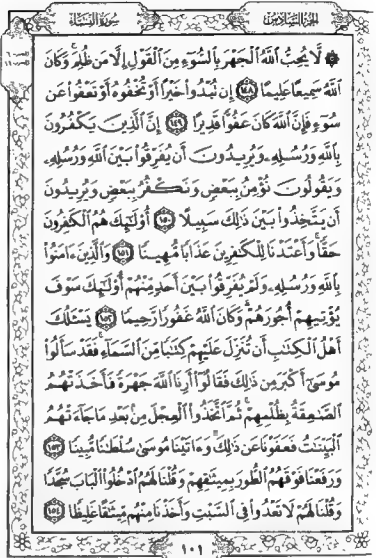 الجزء السادس سورة النساء
۞ لَّا يُحِبُّ اللَّهُ الْجَهْرَ بِالسُّوءِ مِنَ الْقَوْلِ إِلَّا مَن ظُلِمَ ۚ وَكَانَ
اللَّهُ سَمِيعًا عَلِيمًا ﴿١٤٨﴾ إِن تُبْدُوا خَيْرًا أَوْ تُخْفُوهُ أَوْ تَعْفُوا عَن
سُوءٍ فَإِنَّ اللَّهَ كَانَ عَفُوًّا قَدِيرًا ﴿١٤٩﴾ إِنَّ الَّذِينَ يَكْفُرُونَ
بِاللَّهِ وَرُسُلِهِ وَيُرِيدُونَ أَن يُفَرِّقُوا بَيْنَ اللَّهِ وَرُسُلِهِ
وَيَقُولُونَ نُؤْمِنُ بِبَعْضٍ وَنَكْفُرُ بِبَعْضٍ وَيُرِيدُونَ
أَن يَتَّخِذُوا بَيْنَ ذَٰلِكَ سَبِيلًا ﴿١٥٠﴾ أُولَٰئِكَ هُمُ الْكَافِرُونَ
حَقًّا ۚ وَأَعْتَدْنَا لِلْكَافِرِينَ عَذَابًا مُّهِينًا ﴿١٥١﴾ وَالَّذِينَ ءَامَنُوا
بِاللَّهِ وَرُسُلِهِ وَلَمْ يُفَرِّقُوا بَيْنَ أَحَدٍ مِّنْهُمْ أُولَٰئِكَ سَوْفَ
يُؤْتِيهِمْ أُجُورَهُمْ ۗ وَكَانَ اللَّهُ غَفُورًا رَّحِيمًا ﴿١٥٢﴾ يَسْـَٔلُكَ
أَهْلُ الْكِتَٰبِ أَن تُنَزِّلَ عَلَيْهِمْ كِتَٰبًا مِّنَ السَّمَاءِ ۚ فَقَدْ سَأَلُوا
مُوسَىٰ أَكْبَرَ مِن ذَٰلِكَ فَقَالُوا أَرِنَا اللَّهَ جَهْرَةً فَأَخَذَتْهُمُ
الصَّٰعِقَةُ بِظُلْمِهِمْ ۚ ثُمَّ اتَّخَذُوا الْعِجْلَ مِن بَعْدِ مَا جَاءَتْهُمُ
الْبَيِّنَٰتُ فَعَفَوْنَا عَن ذَٰلِكَ ۚ وَءَاتَيْنَا مُوسَىٰ سُلْطَٰنًا مُّبِينًا ﴿١٥٣﴾
وَرَفَعْنَا فَوْقَهُمُ الطُّورَ بِمِيثَٰقِهِمْ وَقُلْنَا لَهُمُ ادْخُلُوا الْبَابَ سُجَّدًا
وَقُلْنَا لَهُمْ لَا تَعْدُوا فِي السَّبْتِ وَأَخَذْنَا مِنْهُم مِّيثَٰقًا غَلِيظًا ﴿١٥٤﴾
١٠١